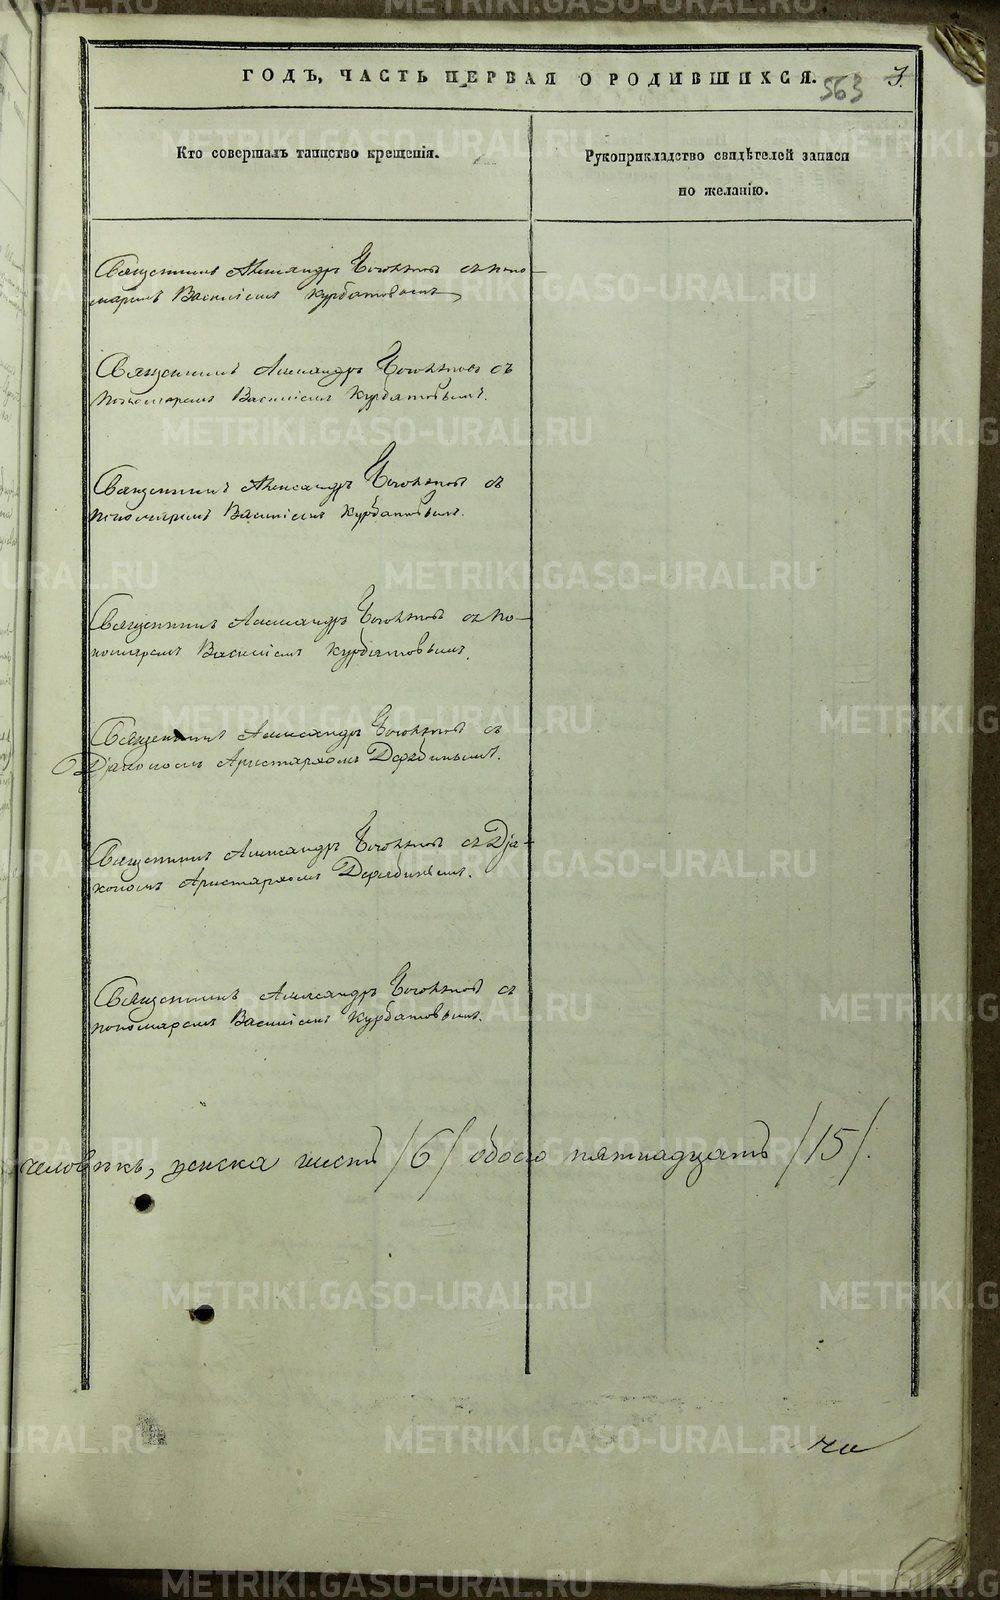 ГОДЪ, ЧАСТЬ ПЕРВАЯ О РОДИВШИХСЯ.
563
Кто совершалъ таинство крещенія.
Рукоприкладство свидѣтелей записи
по желанію.
Священникъ Александръ съ поно-
маремъ Василіемъ Курбатовымъ
Священникъ Александръ съ
пономаремъ Василіемъ Курбатовымъ.
Священникъ Александръ съ
пономаремъ Василіемъ Курбатовымъ.
Священникъ Александръ съ по-
номаремъ Василіемъ Курбатовымъ.
Священникъ Александръ съ
Діакономъ Аристархомъ Дерябинымъ.
Священникъ Александръ съ Діа-
кономъ Аристархомъ Дерябинымъ.
Священникъ Александръ съ
пономаремъ Василіемъ Курбатовымъ.
человѣкъ, женска шесть /6/ обоего пятнадцать /15/.
METRIKI.GASO-URAL.RU